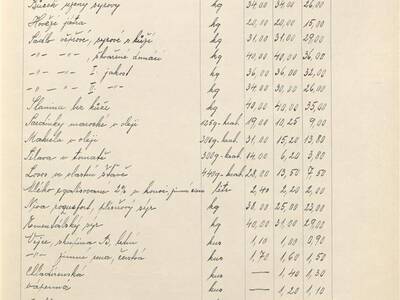 kg 34,00 34,00 26,00
Hovězí játra kg 20,00 20,00 15,00
Sádlo vepřové, syrové s kůží kg 31,00 31,00 29,00
-"- -"- , škvařené domácí kg 40,00 40,00 36,00
-"- -"- I. jakost kg 36,00 36,00 32,00
-"- -"- II. -"- kg 34,00 30,00 26,00
Slanina bez kůže kg 40,00 40,00 35,00
Sardinky marocké v oleji 125g-krab. 19,00 10,25 9,00
Makrela v oleji 300g-krab. 31,00 15,20 13,80
v tomatě 300g-krab. 14,00 6,20 3,80
Losos ve vlastní šťávě 440g-krab. 28,00 13,50 7,50
Mléko 2% v konvi litr 2,40 2,20 2,00
Niva roquefort, plísňový sýr kg 38,00 25,00 23,00
Ementálský sýr kg 40,00 31,00 29,00
Vejce, skupina B, kus 1,10 1,00 0,90
-"- čerstvá kus 1,70 1,60 1,50
Chladírenská kus — 1,40 1,30
vápenná kus — 1,20 1,10